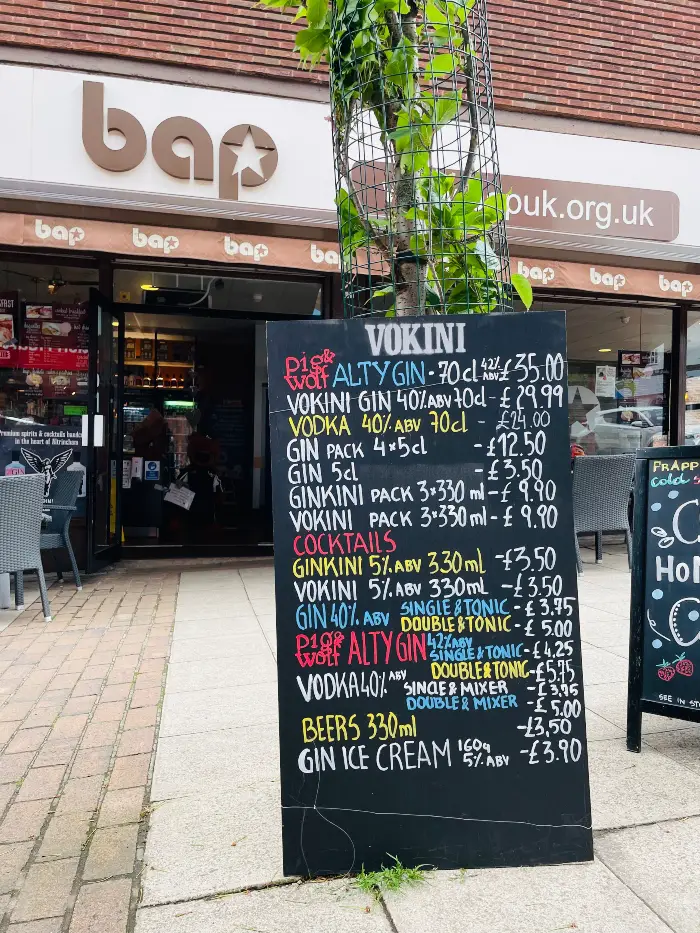 bap
puk.org.uk
bap
bap
bap
bap
bap
bap
bap
Premium spirits & cocktails
in the heart of Altrincham
VOKINI
pig& wolf ALTY GIN - 70cl 42% ABV - £35.00
VOKINI GIN 40% ABV 70cl - £29,99
VODKA 40% ABV 70cl - £24.00
GIN PACK 4x5cl - £12.50
GIN 5cl - £3.50
GINKINI PACK 3x330 ml - £9.90
VOKINI PACK 3x330 ml - £9.90
COCKTAILS
GINKINI 5% ABV 330ml - £3.50
VOKINI 5% ABV 330ml - £3,50
GIN 40% ABV SINGLE & TONIC - £3.75
DOUBLE & TONIC - £5.00
pig& wolf ALTY GIN 42% ABV
SINGLE & TONIC - £4.25
DOUBLE & TONIC - £5.75
VODKA 40% ABV SINGLE & MIXER - £3.75
DOUBLE & MIXER - £5.00
BEERS 330ml - £3,50
GIN ICE CREAM 160g 5% ABV - £3.90
FRAPP
Cold
C
HO
SEE IN ST